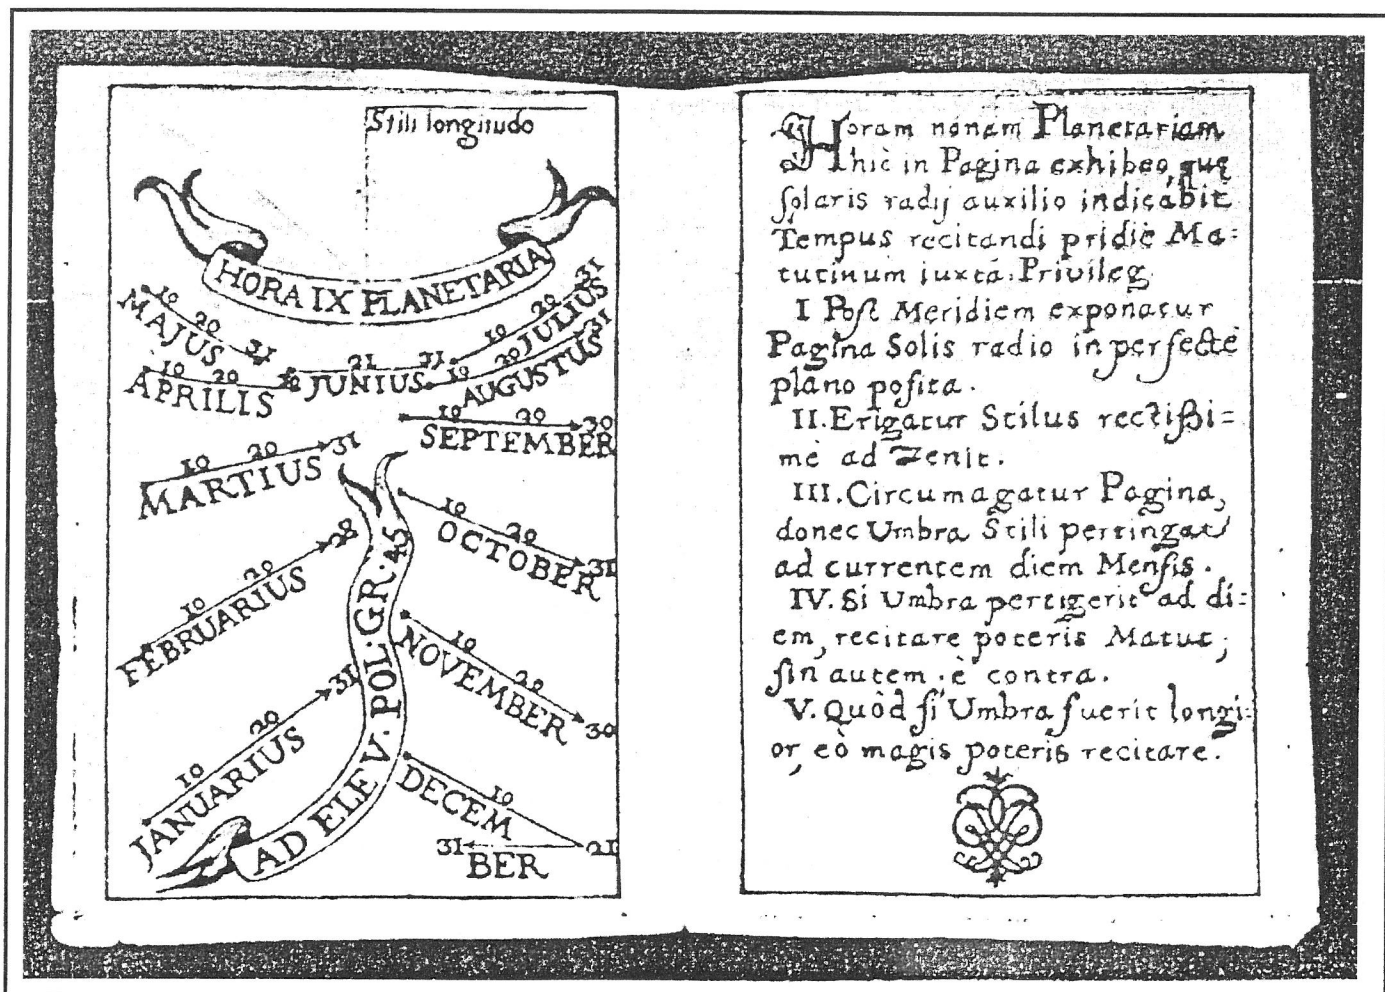 Stili longitudo
HORA IX PLANETARIA
MAJUS
10 20 31
APRILIS
10 20 30
JUNIUS
21 31
JULIUS
10 20 31
AUGUSTUS
10 20 31
SEPTEMBER
10 20 30
MARTIUS
10 20 31
OCTOBER
10 20 31
FEBRUARIUS
10 20 28
NOVEMBER
10 20 30
JANUARIUS
10 20 31
DECEM
BER
10 21
31
AD ELEV. POL. GR. 45
Horam nonam Planetariam
hic in Pagina exhibeo, quę
solaris radij auxilio indicabit
Tempus recitandi pridie Ma=
tutinum iuxta Privileg
I Post Meridiem exponatur
Pagina Solis radio in perfectè
plano posita.
II. Erigatur Stilus rectißi=
mè ad Zenit.
III. Circumagatur Pagina,
donec Umbra Stili pertingat
ad currentem diem Mensis.
IV. Si Umbra pertigerit ad di=
em, recitare poteris Matut;
sin autem è contra.
V. Quòd si Umbra fuerit longi=
or, eò magis poteris recitare.